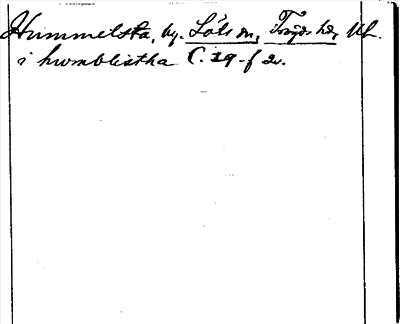 Hummelsta, by. Löts sn, Trögds hd, Upl.
i humblistha C. 19 - f 2v.